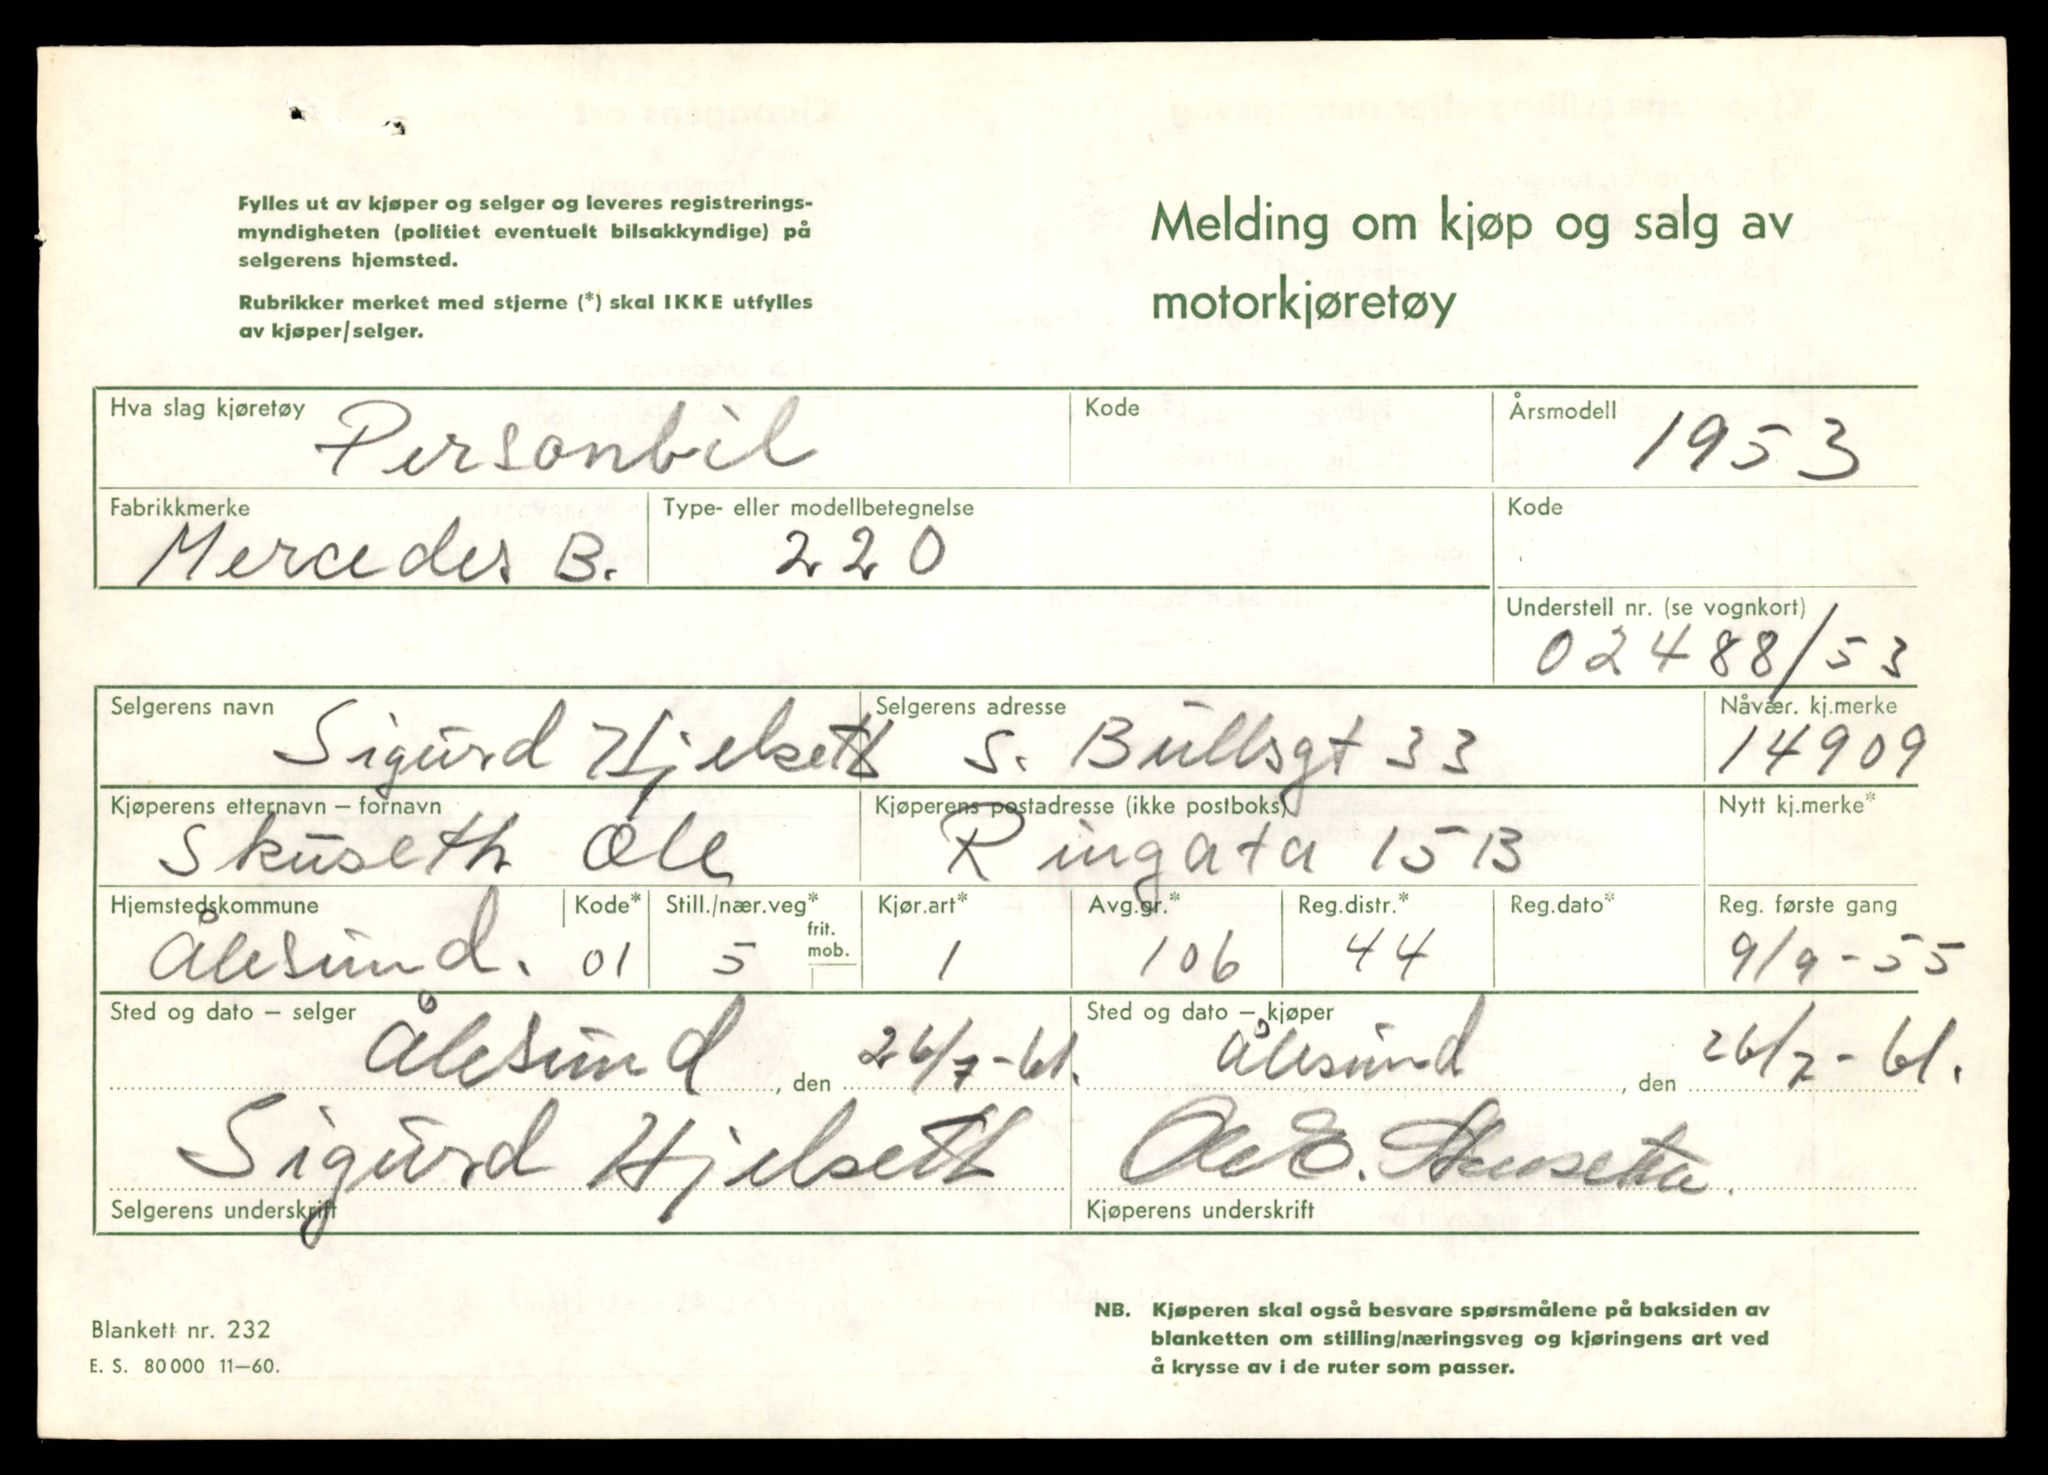 Fylles ut av kjøper og selger og leveres registrerings-
myndigheten (politiet eventuelt bilsakkyndige) på
selgerens hjemsted.
Rubrikker merket med stjerne (*) skal IKKE utfylles
av kjøper/selger.
Melding om kjøp og salg av
motorkjøretøy
Hva slag kjøretøy Personbil
Kode
Årsmodell 1953
Fabrikkmerke Mercedes B.
Type- eller modellbetegnelse 220
Kode
Understell nr. (se vognkort)
02488/53
Selgerens navn Sigurd Hjelseth
Selgerens adresse S. Bullsgt 33
Nåvær. kj.merke 14909
Kjøperens etternavn – fornavn Skuseth Ole
Kjøperens postadresse (ikke postboks) Ringata 15B
Nytt kj.merke*
Hjemstedskommune Ålesund.
Kode* 01
Still./nær.veg* 5
frit.
mob.
Kjør.art* 1
Avg.gr.* 106
Reg.distr.* 44
Reg.dato*
Reg. første gang 9/9-55
Sted og dato – selger Ålesund , den 26/7-61.
Sted og dato – kjøper Ålesund , den 26/7-61.
Sigurd Hjelseth
Selgerens underskrift
Ole E. Skuseth
Kjøperens underskrift
Blankett nr. 232
E. S. 80000 11–60.
NB. Kjøperen skal også besvare spørsmålene på baksiden av
blanketten om stilling/næringsveg og kjøringens art ved
å krysse av i de ruter som passer.